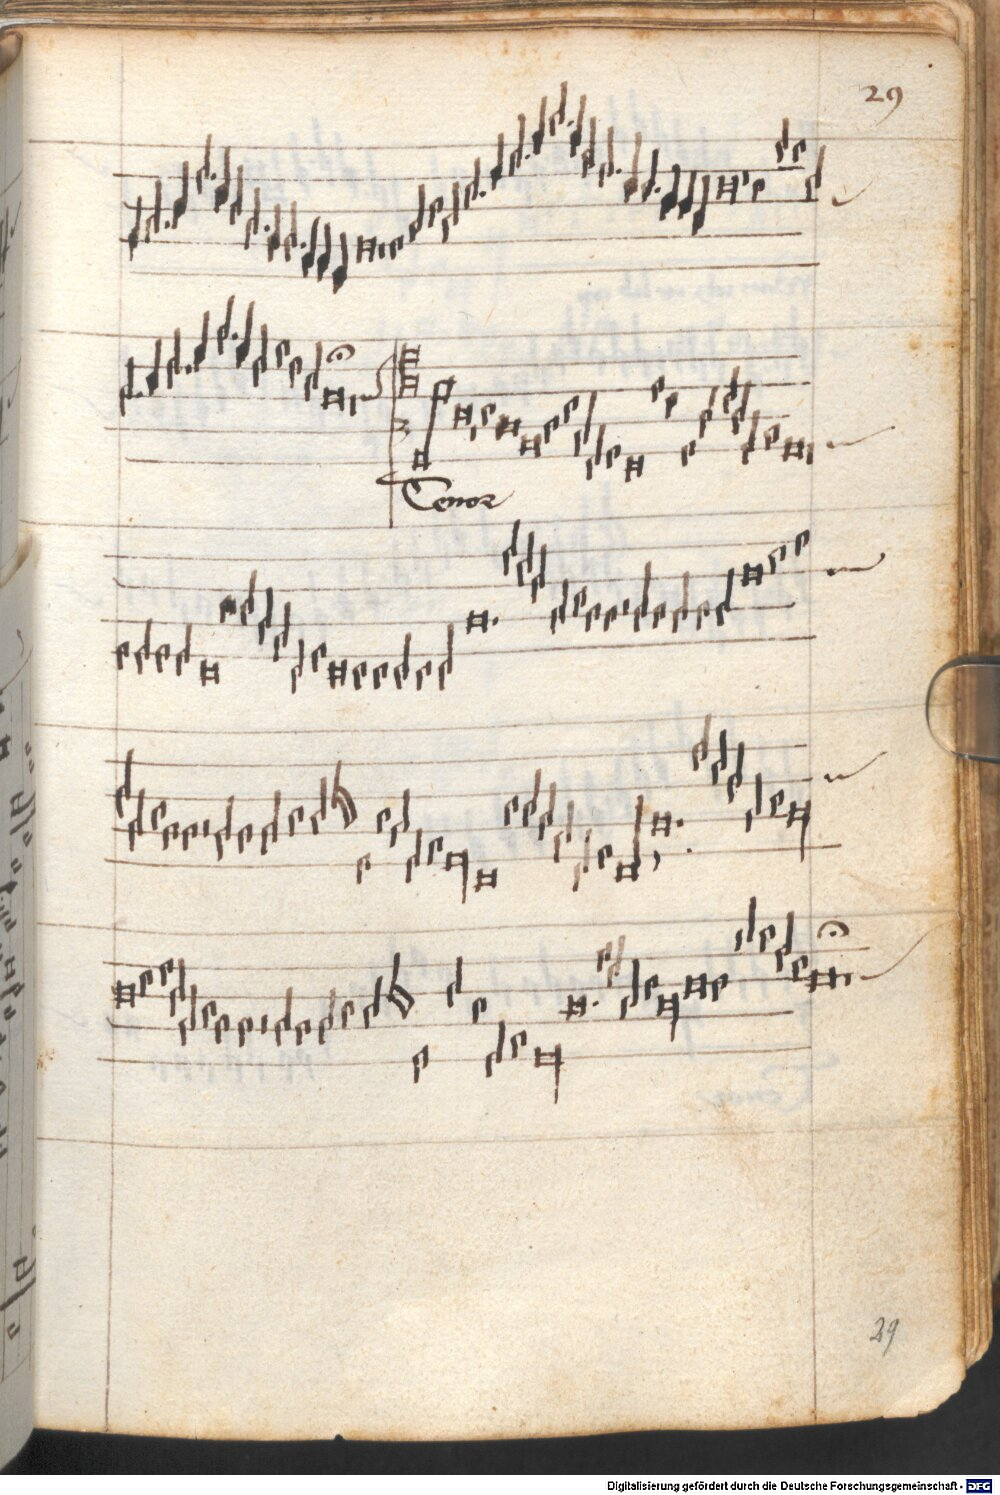 29
Tenor
29
Digitalisierung gefördert durch die Deutsche Forschungsgemeinschaft - DFG